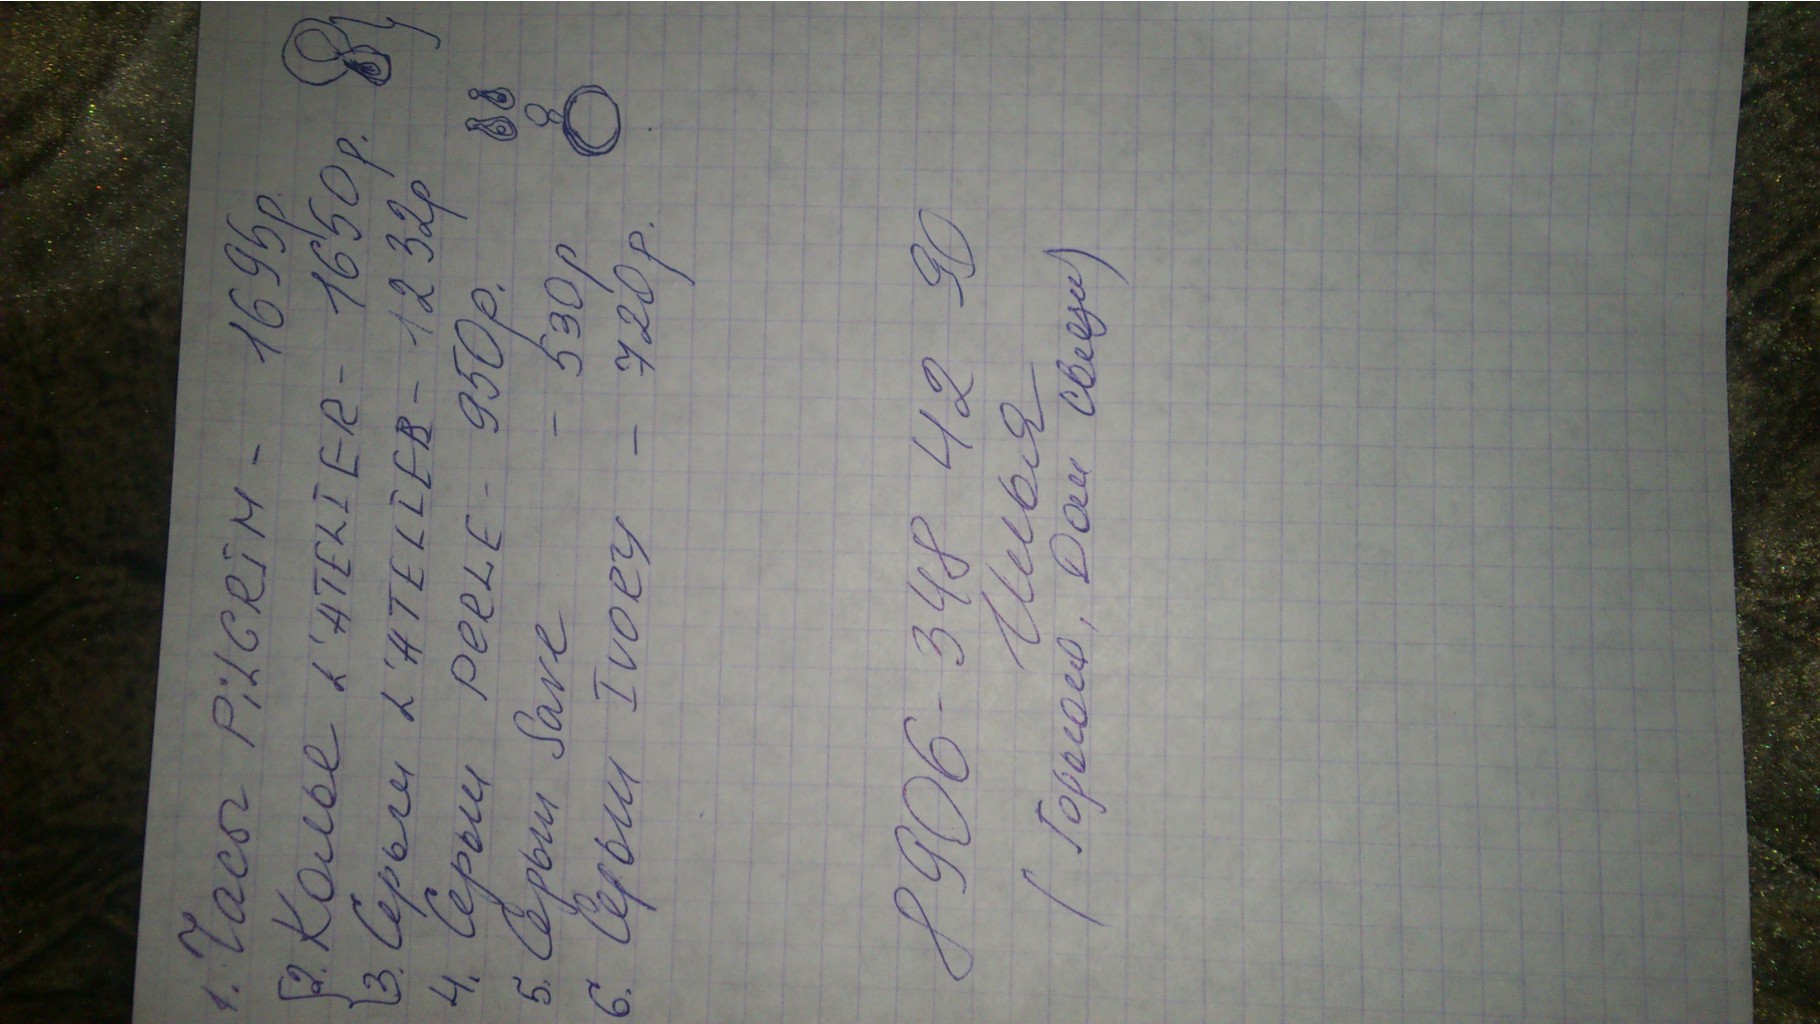 1. Часы PiLGRIM - 1695р.
2. Колье L'ATELIER - 1650р.
3. Серьги L'ATELIER - 1232р
4. Серьги PERLE - 950р.
5. Серьги Save - 530р
6. Серьги IVORY - 720р.
8906-348 42 90
Илья
( Горького, Дом связи)